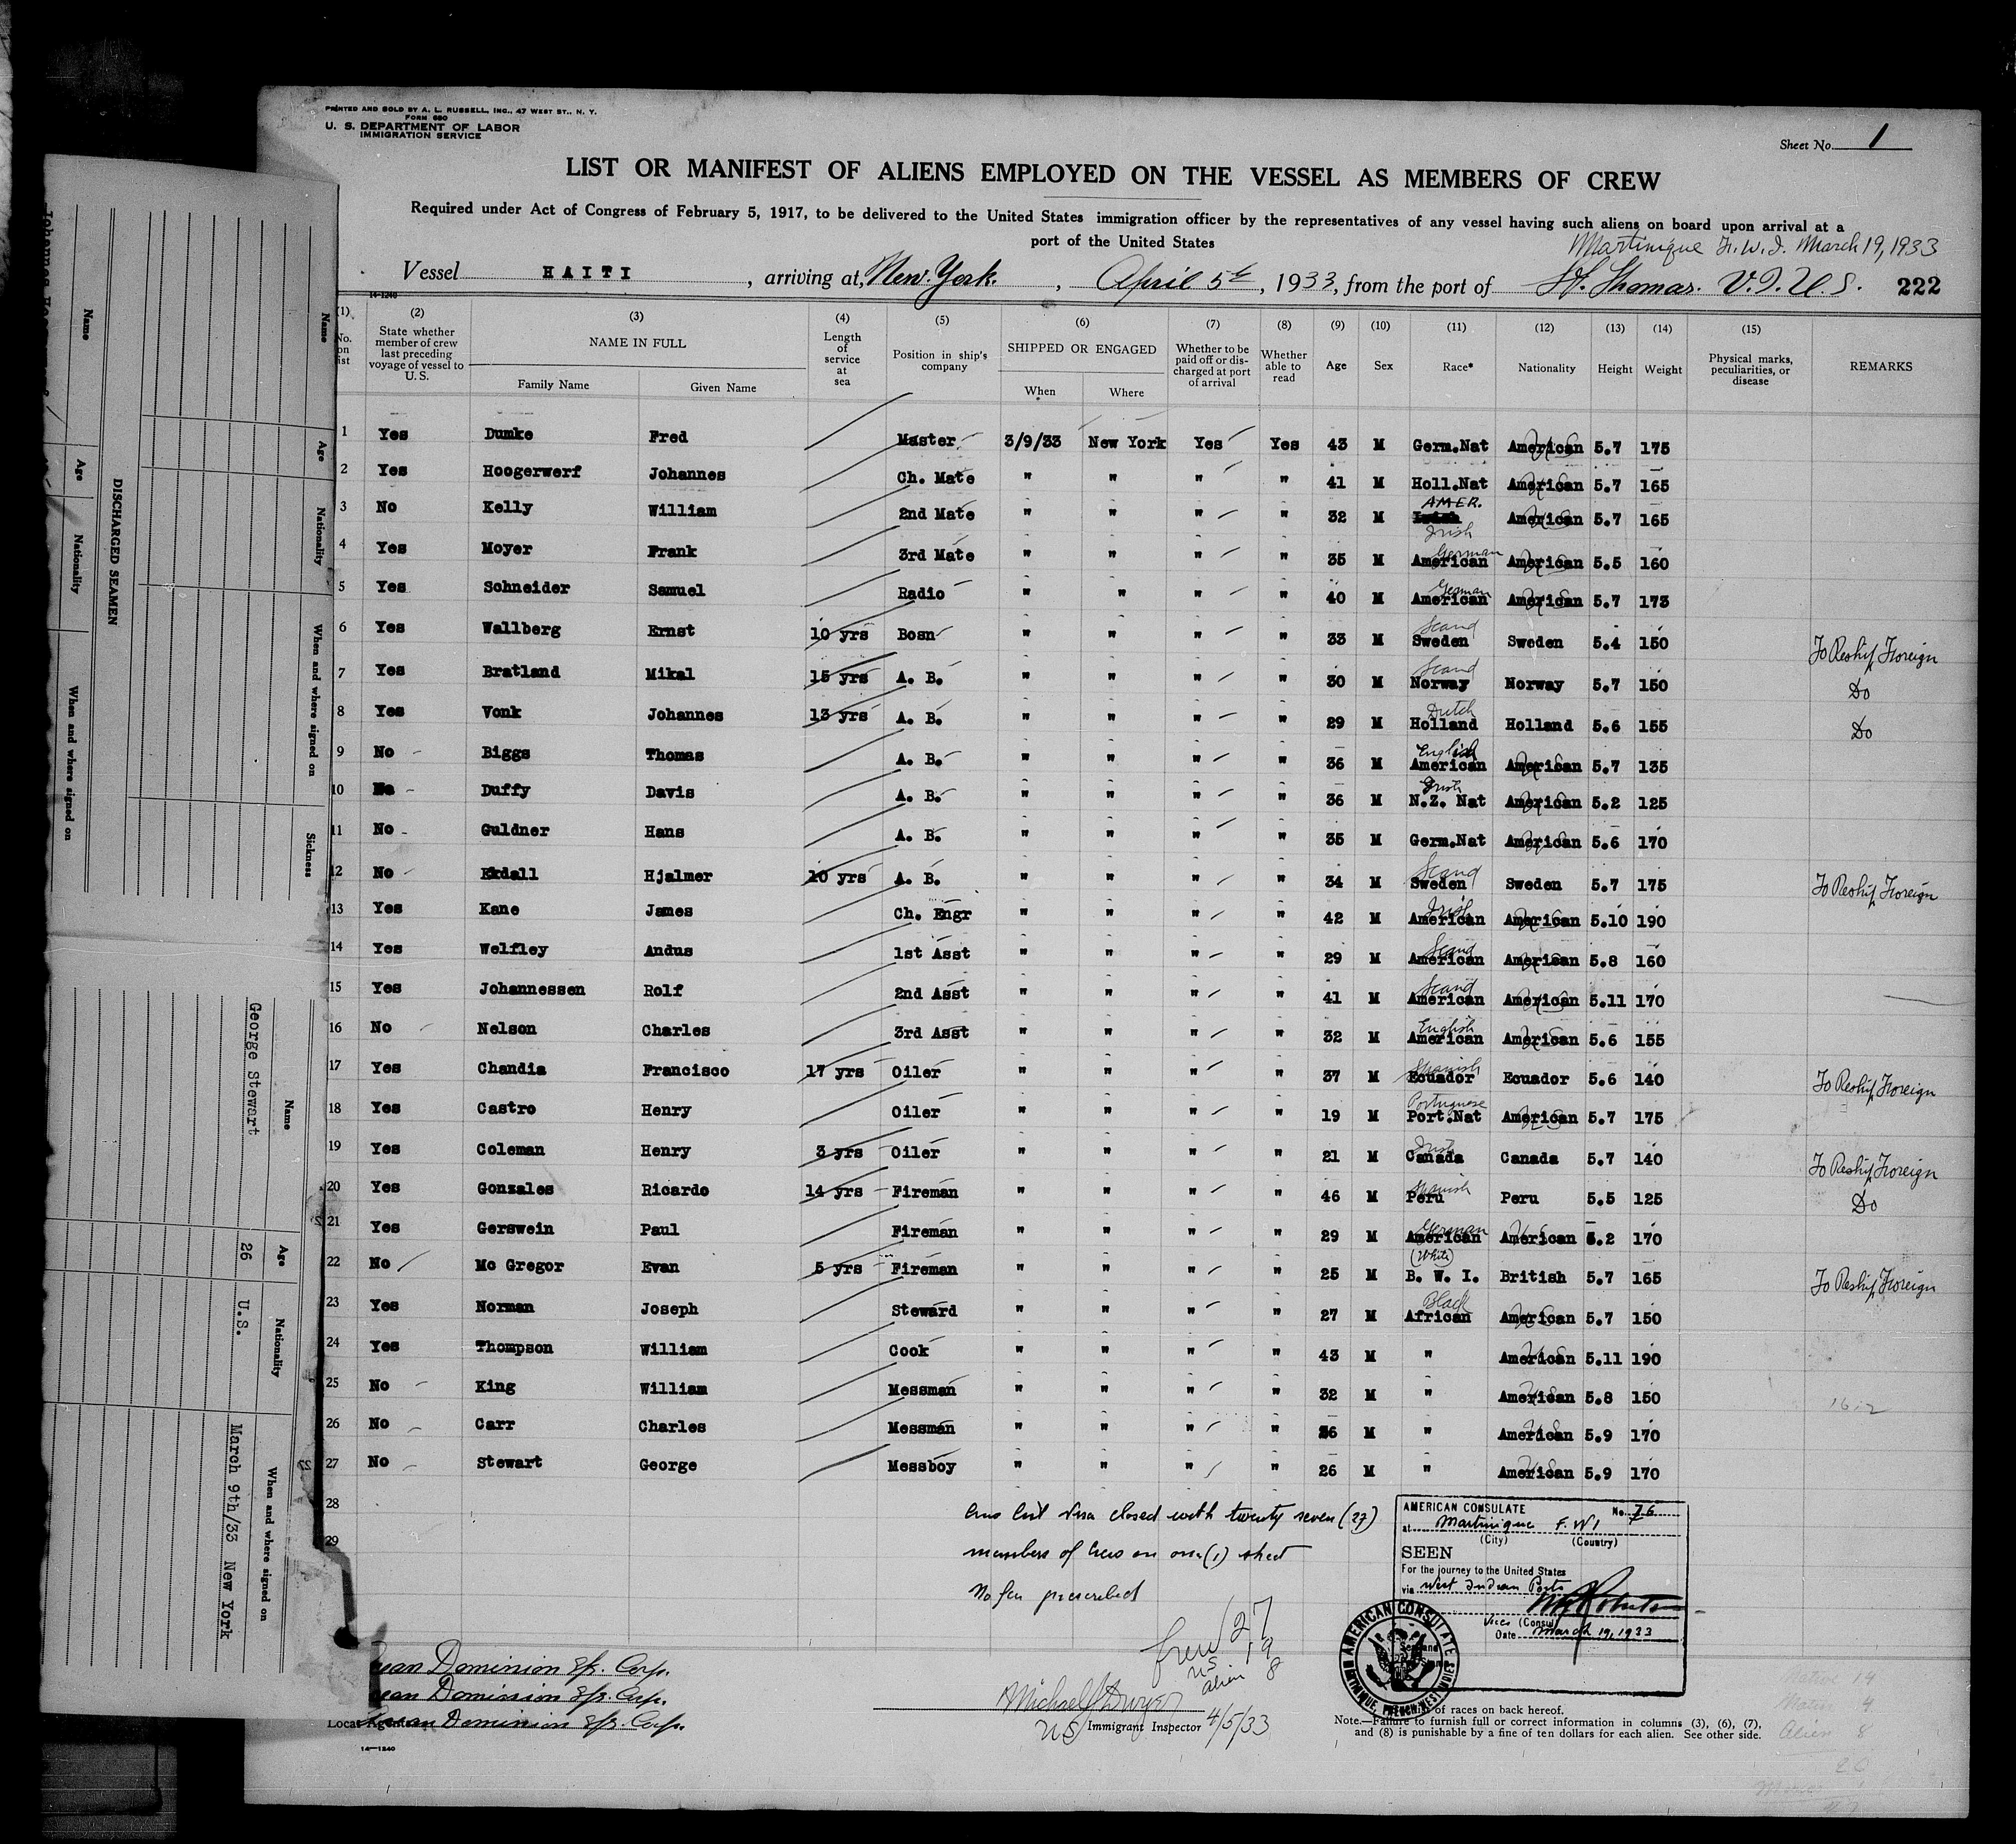 PRINTED AND SOLD BY A. L. RUSSELL, INC., 47 WEST ST., N. Y.
FORM 680
U. S. DEPARTMENT OF LABOR
IMMIGRATION SERVICE
Sheet No. 1
LIST OR MANIFEST OF ALIENS EMPLOYED ON THE VESSEL AS MEMBERS OF CREW
Required under Act of Congress of February 5, 1917, to be delivered to the United States immigration officer by the representatives of any vessel having such aliens on board upon arrival at a
port of the United States
Martinique F.W.I. March 19, 1933
Vessel HAITI, arriving at, New York, April 5th, 1933, from the port of St. Thomas. V.I.U.S. 222
14-1240
(1) (2) (3) (4) (5) (6) (7) (8) (9) (10) (11) (12) (13) (14) (15)
No. on list | State whether member of crew last preceding voyage of vessel to U. S. | NAME IN FULL | Length of service at sea | Position in ship's company | SHIPPED OR ENGAGED | Whether to be paid off or discharged at port of arrival | Whether able to read | Age | Sex | Race* | Nationality | Height | Weight | Physical marks, peculiarities, or disease | REMARKS
Family Name | Given Name | When | Where
1 Yes Dumke Fred Master 3/9/33 New York Yes Yes 43 M Germ.Nat American US 5.7 175
2 Yes Hoogerwerf Johannes Ch. Mate " " " " 41 M Holl.Nat American US 5.7 165
3 No Kelly William 2nd Mate " " " " 32 M AMER. Irish Irish American US 5.7 165
4 Yes Moyer Frank 3rd Mate " " " " 35 M American German American US 5.5 160
5 Yes Schneider Samuel Radio " " " " 40 M American German American US 5.7 173
6 Yes Wallberg Ernst 10 yrs Bosn " " " " 33 M Sweden Scand Sweden 5.4 150 To Reship Foreign
7 Yes Bratland Mikal 15 yrs A. B. " " " " 30 M Norway Scand Norway 5.7 150 Do
8 Yes Vonk Johannes 13 yrs A. B. " " " " 29 M Holland Dutch Holland 5.6 155 Do
9 No Biggs Thomas A. B. " " " " 36 M American English American US 5.7 135
10 No Duffy Davis A. B. " " " " 36 M N.Z. Nat Irish American US 5.2 125
11 No Guldner Hans A. B. " " " " 35 M Germ.Nat American US 5.6 170
12 No Ekdall Hjalmer 10 yrs A. B. " " " " 34 M Sweden Scand Sweden 5.7 175 To Reship Foreign
13 Yes Kane James Ch. Engr " " " " 42 M American Irish American US 5.10 190
14 Yes Welfley Andus 1st Asst " " " " 29 M American Scand American US 5.8 160
15 Yes Johannessen Rolf 2nd Asst " " " " 41 M American Scand American US 5.11 170
16 No Nelson Charles 3rd Asst " " " " 32 M American English American US 5.6 155
17 Yes Chandia Francisco 17 yrs Oiler " " " " 37 M Ecuador Spanish Ecuador 5.6 140 To Reship Foreign
18 Yes Castro Henry Oiler " " " " 19 M Port.Nat Portuguese American US 5.7 175
19 Yes Coleman Henry 3 yrs Oiler " " " " 21 M Canada Irish Canada 5.7 140 To Reship Foreign
20 Yes Gonzales Ricardo 14 yrs Fireman " " " " 46 M Peru Spanish Peru 5.5 125 Do
21 Yes Gerswein Paul Fireman " " " " 29 M American German American US 5.2 170
22 No Mc Gregor Evan 5 yrs Fireman " " " " 25 M B. W. I. (White) British 5.7 165 To Reship Foreign
23 Yes Norman Joseph Steward " " " " 27 M African Black American US 5.7 150
24 Yes Thompson William Cook " " " " 43 M " American US 5.11 190
25 No King William Messman " " " " 32 M " American US 5.8 150
26 No Carr Charles Messman " " " " 36 M " American US 5.9 170
27 No Stewart George Messboy " " " " 26 M " American US 5.9 170
28
29
Crew list visa closed with twenty seven (27)
members of crew on one (1) sheet
No fee prescribed
AMERICAN CONSULATE No. 76
at Martinique F.W.I
(City) (Country)
SEEN
For the journey to the United States
via West Indian Ports
Vice Consul
Date March 19, 1933
AMERICAN CONSULATE
MARTINIQUE, FRENCH WEST INDIES
Crew 27
US 19
Alien 8
Dominion Corp.
Dominion Corp.
Dominion Corp.
Local Agents
Michael J Dwyer
US Immigrant Inspector 4/5/33
of races on back hereof.
Note.—Failure to furnish full or correct information in columns (3), (6), (7),
and (8) is punishable by a fine of ten dollars for each alien. See other side.
14—1240
DISCHARGED SEAMEN
Name Age Nationality When and where signed on Sickness
Name Age Nationality When and where signed on
Name Age Nationality When and where signed on
George Stewart 26 U.S. March 9th/33 New York